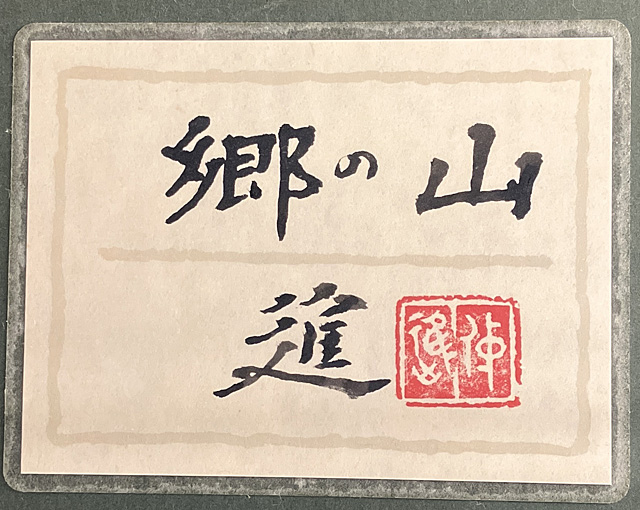 郷の山
進